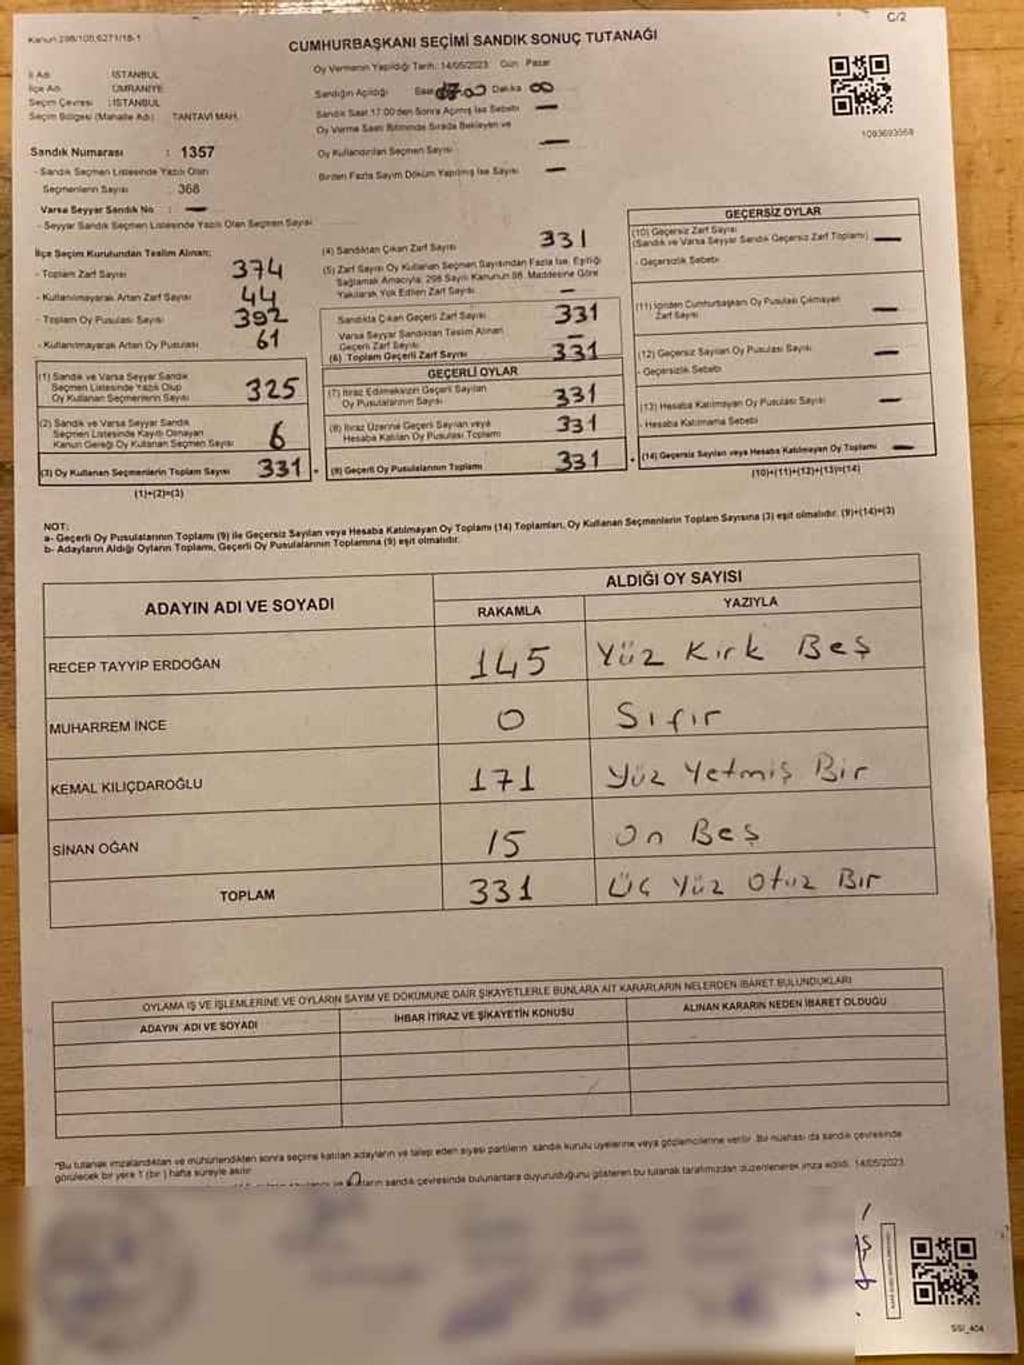 Kanun 298/105,6271/18-1
C/2
CUMHURBAŞKANI SEÇİMİ SANDIK SONUÇ TUTANAĞI
İl Adı : İSTANBUL
İlçe Adı : ÜMRANİYE
Seçim Çevresi : İSTANBUL
Seçim Bölgesi (Mahalle Adı) : TANTAVİ MAH.
Sandık Numarası : 1357
- Sandık Seçmen Listesinde Yazılı Olan
Seçmenlerin Sayısı : 368
Varsa Seyyar Sandık No : —
- Seyyar Sandık Seçmen Listesinde Yazılı Olan Seçmen Sayısı
Oy Vermenin Yapıldığı Tarih: 14/05/2023 Gün Pazar
Sandığın Açıldığı Saat Dakika 00
Sandık Saat 17:00'den Sonra Açılmış İse Sebebi —
Oy Verme Saati Bitiminde Sırada Bekleyen ve
Oy Kullandırılan Seçmen Sayısı —
Birden Fazla Sayım Döküm Yapılmış İse Sayısı —
1093693568
İlçe Seçim Kurulundan Teslim Alınan;
- Toplam Zarf Sayısı 374
- Kullanılmayarak Artan Zarf Sayısı 44
- Toplam Oy Pusulası Sayısı 392
- Kullanılmayarak Artan Oy Pusulası 61
(1) Sandık ve Varsa Seyyar Sandık
Seçmen Listesinde Yazılı Olup
Oy Kullanan Seçmenlerin Sayısı 325
(2) Sandık ve Varsa Seyyar Sandık
Seçmen Listesinde Kayıtlı Olmayan
Kanun Gereği Oy Kullanan Seçmen Sayısı 6
(3) Oy Kullanan Seçmenlerin Toplam Sayısı 331
(1)+(2)=(3)
(4) Sandıktan Çıkan Zarf Sayısı 331
(5) Zarf Sayısı Oy Kullanan Seçmen Sayısından Fazla İse, Eşitliği
Sağlamak Amacıyla, 298 Sayılı Kanunun 98. Maddesine Göre
Yakılarak Yok Edilen Zarf Sayısı —
Sandıkta Çıkan Geçerli Zarf Sayısı 331
Varsa Seyyar Sandıktan Teslim Alınan
Geçerli Zarf Sayısı —
(6) Toplam Geçerli Zarf Sayısı 331
GEÇERLİ OYLAR
(7) İtiraz Edilmeksizin Geçerli Sayılan
Oy Pusulalarının Sayısı 331
(8) İtiraz Üzerine Geçerli Sayılan veya
Hesaba Katılan Oy Pusulası Toplamı 331
(9) Geçerli Oy Pusulalarının Toplamı 331
GEÇERSİZ OYLAR
(10) Geçersiz Zarf Sayısı
(Sandık ve Varsa Seyyar Sandık Geçersiz Zarf Toplamı) —
- Geçersizlik Sebebi
(11) İçinden Cumhurbaşkanı Oy Pusulası Çıkmayan
Zarf Sayısı —
(12) Geçersiz Sayılan Oy Pusulası Sayısı —
- Geçersizlik Sebebi
(13) Hesaba Katılmayan Oy Pusulası Sayısı —
- Hesaba Katılmama Sebebi
(14) Geçersiz Sayılan veya Hesaba Katılmayan Oy Toplamı —
(10)+(11)+(12)+(13)=(14)
NOT:
a- Geçerli Oy Pusulalarının Toplamı (9) ile Geçersiz Sayılan veya Hesaba Katılmayan Oy Toplamı (14) Toplamları, Oy Kullanan Seçmenlerin Toplam Sayısına (3) eşit olmalıdır. (9)+(14)=(3)
b- Adayların Aldığı Oyların Toplamı, Geçerli Oy Pusulalarının Toplamına (9) eşit olmalıdır.
ADAYIN ADI VE SOYADI
ALDIĞI OY SAYISI
RAKAMLA YAZIYLA
RECEP TAYYİP ERDOĞAN 145 Yüz Kırk Beş
MUHARREM İNCE 0 Sıfır
KEMAL KILIÇDAROĞLU 171 Yüz Yetmiş Bir
SİNAN OĞAN 15 On Beş
TOPLAM 331 Üç Yüz Otuz Bir
OYLAMA İŞ VE İŞLEMLERİNE VE OYLARIN SAYIM VE DÖKÜMÜNE DAİR ŞİKAYETLERLE BUNLARA AİT KARARLARIN NELERDEN İBARET BULUNDUKLARI
ADAYIN ADI VE SOYADI İHBAR İTİRAZ VE ŞİKAYETİN KONUSU ALINAN KARARIN NEDEN İBARET OLDUĞU
*Bu tutanak imzalandıktan ve mühürlendikten sonra seçime katılan adayların ve talep eden siyasi partilerin sandık kurulu üyelerine veya gözlemcilerine verilir. Bir nüshası da sandık çevresinde
görülecek bir yere 1 (bir) hafta süreyle asılır.
sandık çevresinde bulunanlara duyurulduğunu gösteren bu tutanak tarafımızdan düzenlenerek imza edildi. 14/05/2023
SSI_404